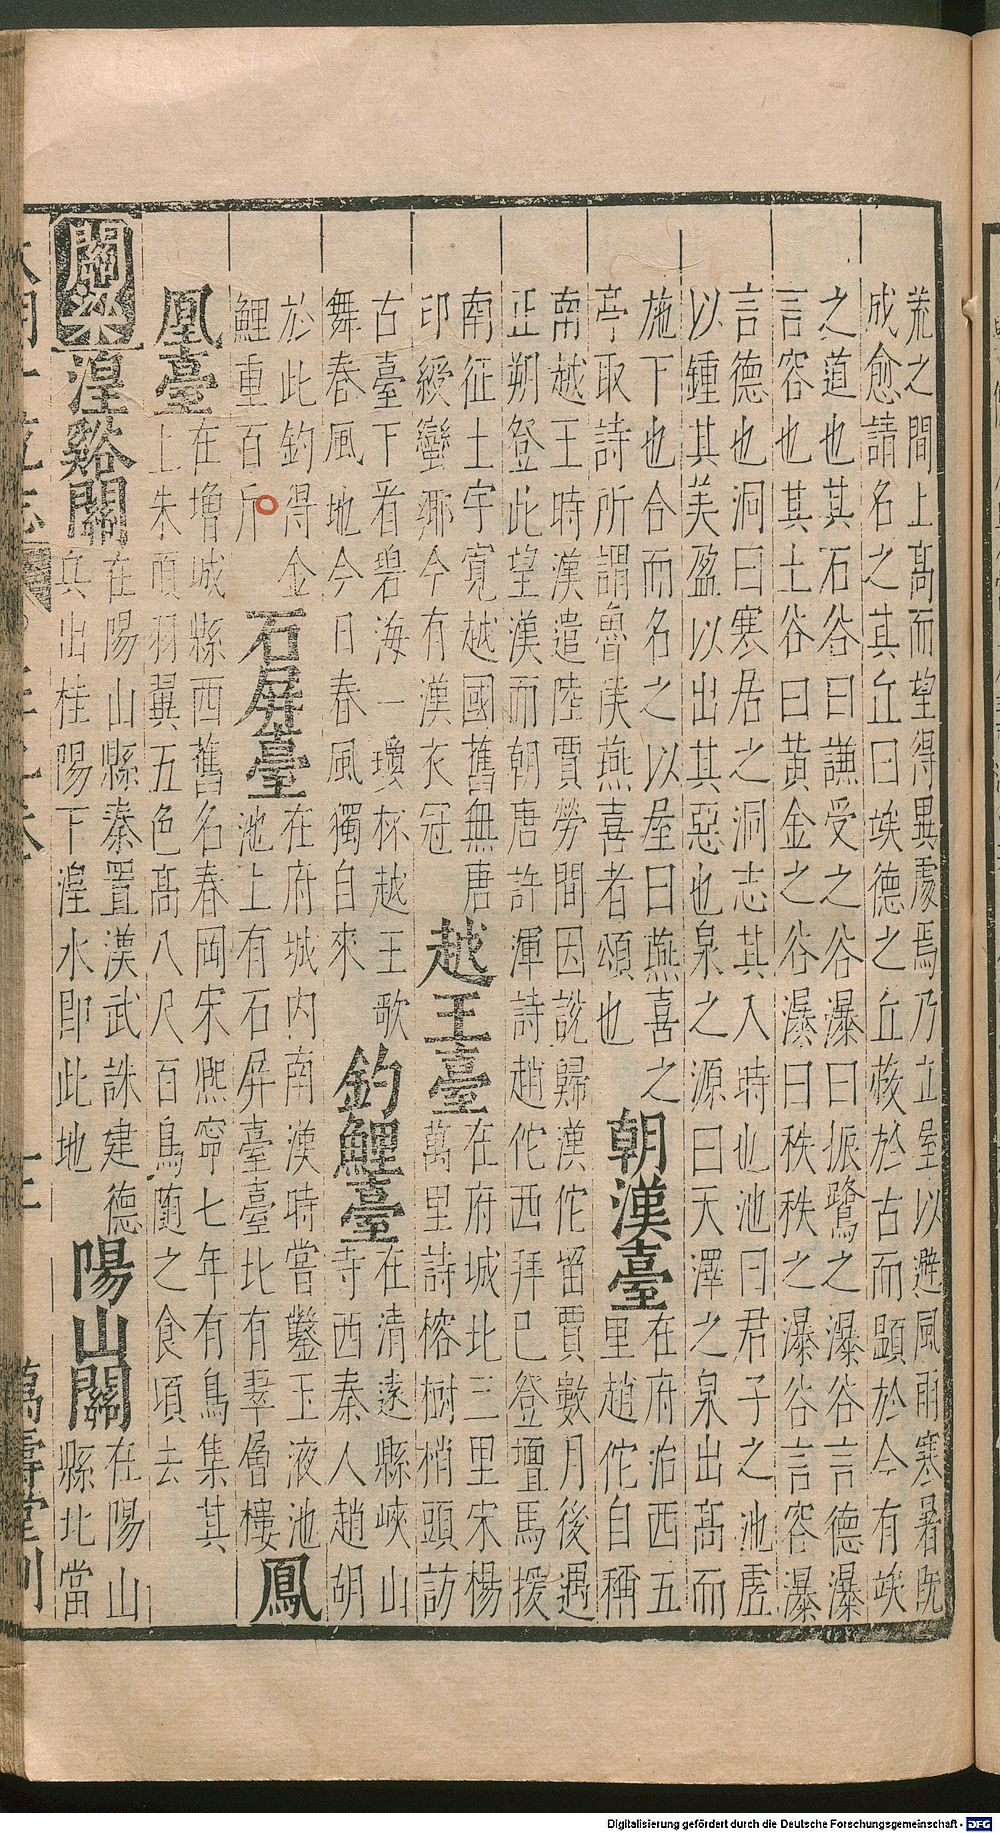 荒之間上高而望得異處焉乃立屋以避風雨寒暑既
成愈請名之其丘曰竢德之丘蔽於古而顯於今有竢
之道也其石谷曰謙受之谷瀑曰振鷺之瀑谷言德瀑
言容也其土谷曰黃金之谷瀑曰秩秩之瀑谷言容瀑
言德也洞曰寒居之洞志其入時也池曰君子之池虛
以鍾其美盈以出其惡也泉之源曰天澤之泉出高而
施下也合而名之以屋曰燕喜之
亭取詩所謂魯侯燕喜者頌也
朝漢臺
在府治西五
里趙佗自稱
南越王時漢遣陸賈勞問因說歸漢佗留賈數月後遇
正朔登此望漢而朝唐許渾詩趙佗西拜已登壇馬援
南征土宇寬越國舊無唐
印綬蠻鄉今有漢衣冠
越王臺
在府城北三里宋楊
萬里詩榕樹梢頭訪
古臺下看碧海一瓊杯越王歌
舞春風地今日春風獨自來
釣鯉臺
在清遠縣峽山
寺西秦人趙胡
於此釣得金
鯉重百斤
石屏臺
在府城內南漢時嘗鑿玉液池
池上有石屏臺臺北有翠層樓
鳳
凰臺
在增城縣西舊名春岡宋熙寧七年有鳥集其
上朱頂羽翼五色高八尺百鳥隨之食頃去
關梁
湟谿關
在陽山縣秦置漢武誅建德
兵出桂陽下湟水即此地
陽山關
在陽山
縣北當
萬壽堂刊
Digitalisierung gefördert durch die Deutsche Forschungsgemeinschaft - DFG